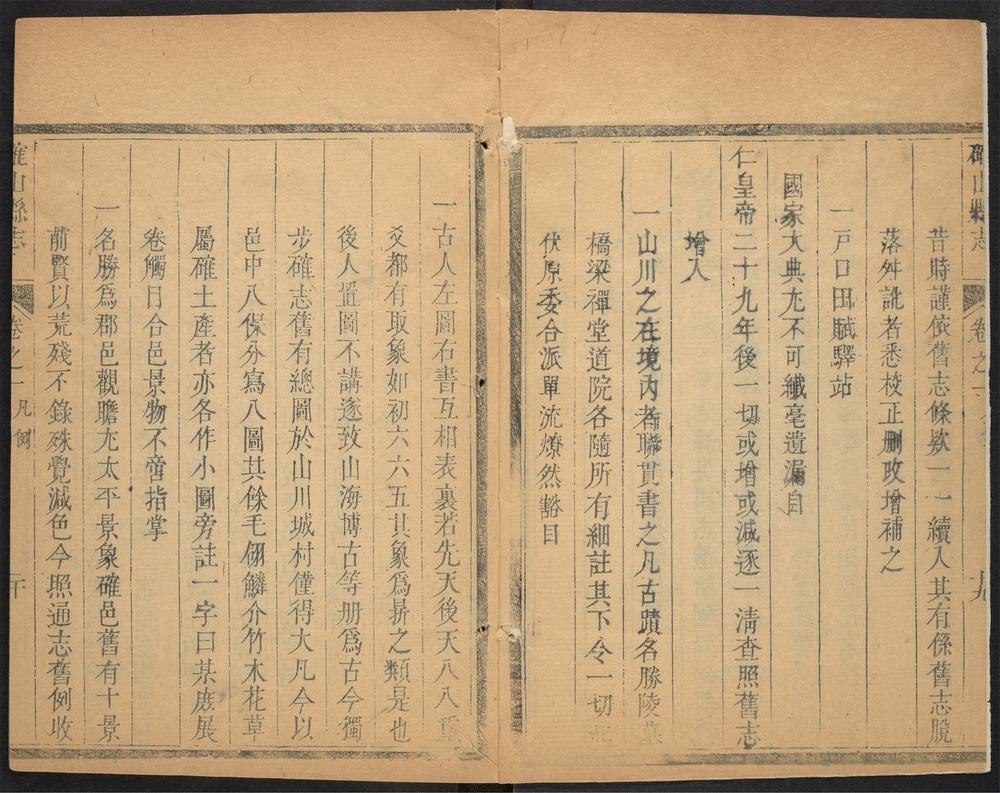 確山縣志
卷之一
九
昔時謹依舊志條欵一一續入其有係舊志脫
落舛訛者悉校正删改增補之
一戸口田賦驛站
國家大典尤不可纖毫遺漏自
仁皇帝二十九年後一切或增或減逐一清查照舊志
增入
一山川之在境內者聯貫書之凡古蹟名勝陵墓
橋梁禪堂道院各隨所有細註其下令一切
伏原委合派單流燎然豁目
一古人左圖右書互相表裏若先天後天八八重
爻都有取象如初六六五其象爲鼎之類是也
後人置圖不講逐致山海博古等册爲古今獨
步確志舊有總圖於山川城村僅得大凡今以
邑中八保分寫八圖其餘毛翎鱗介竹木花草
屬確土產者亦各作小圖旁註一字曰某庶展
卷觸目合邑景物不啻指掌
一名勝爲郡邑觀瞻尤太平景象確邑舊有十景
前賢以荒殘不錄殊覺減色今照通志舊例收
確山縣志
卷之一 凡例
十